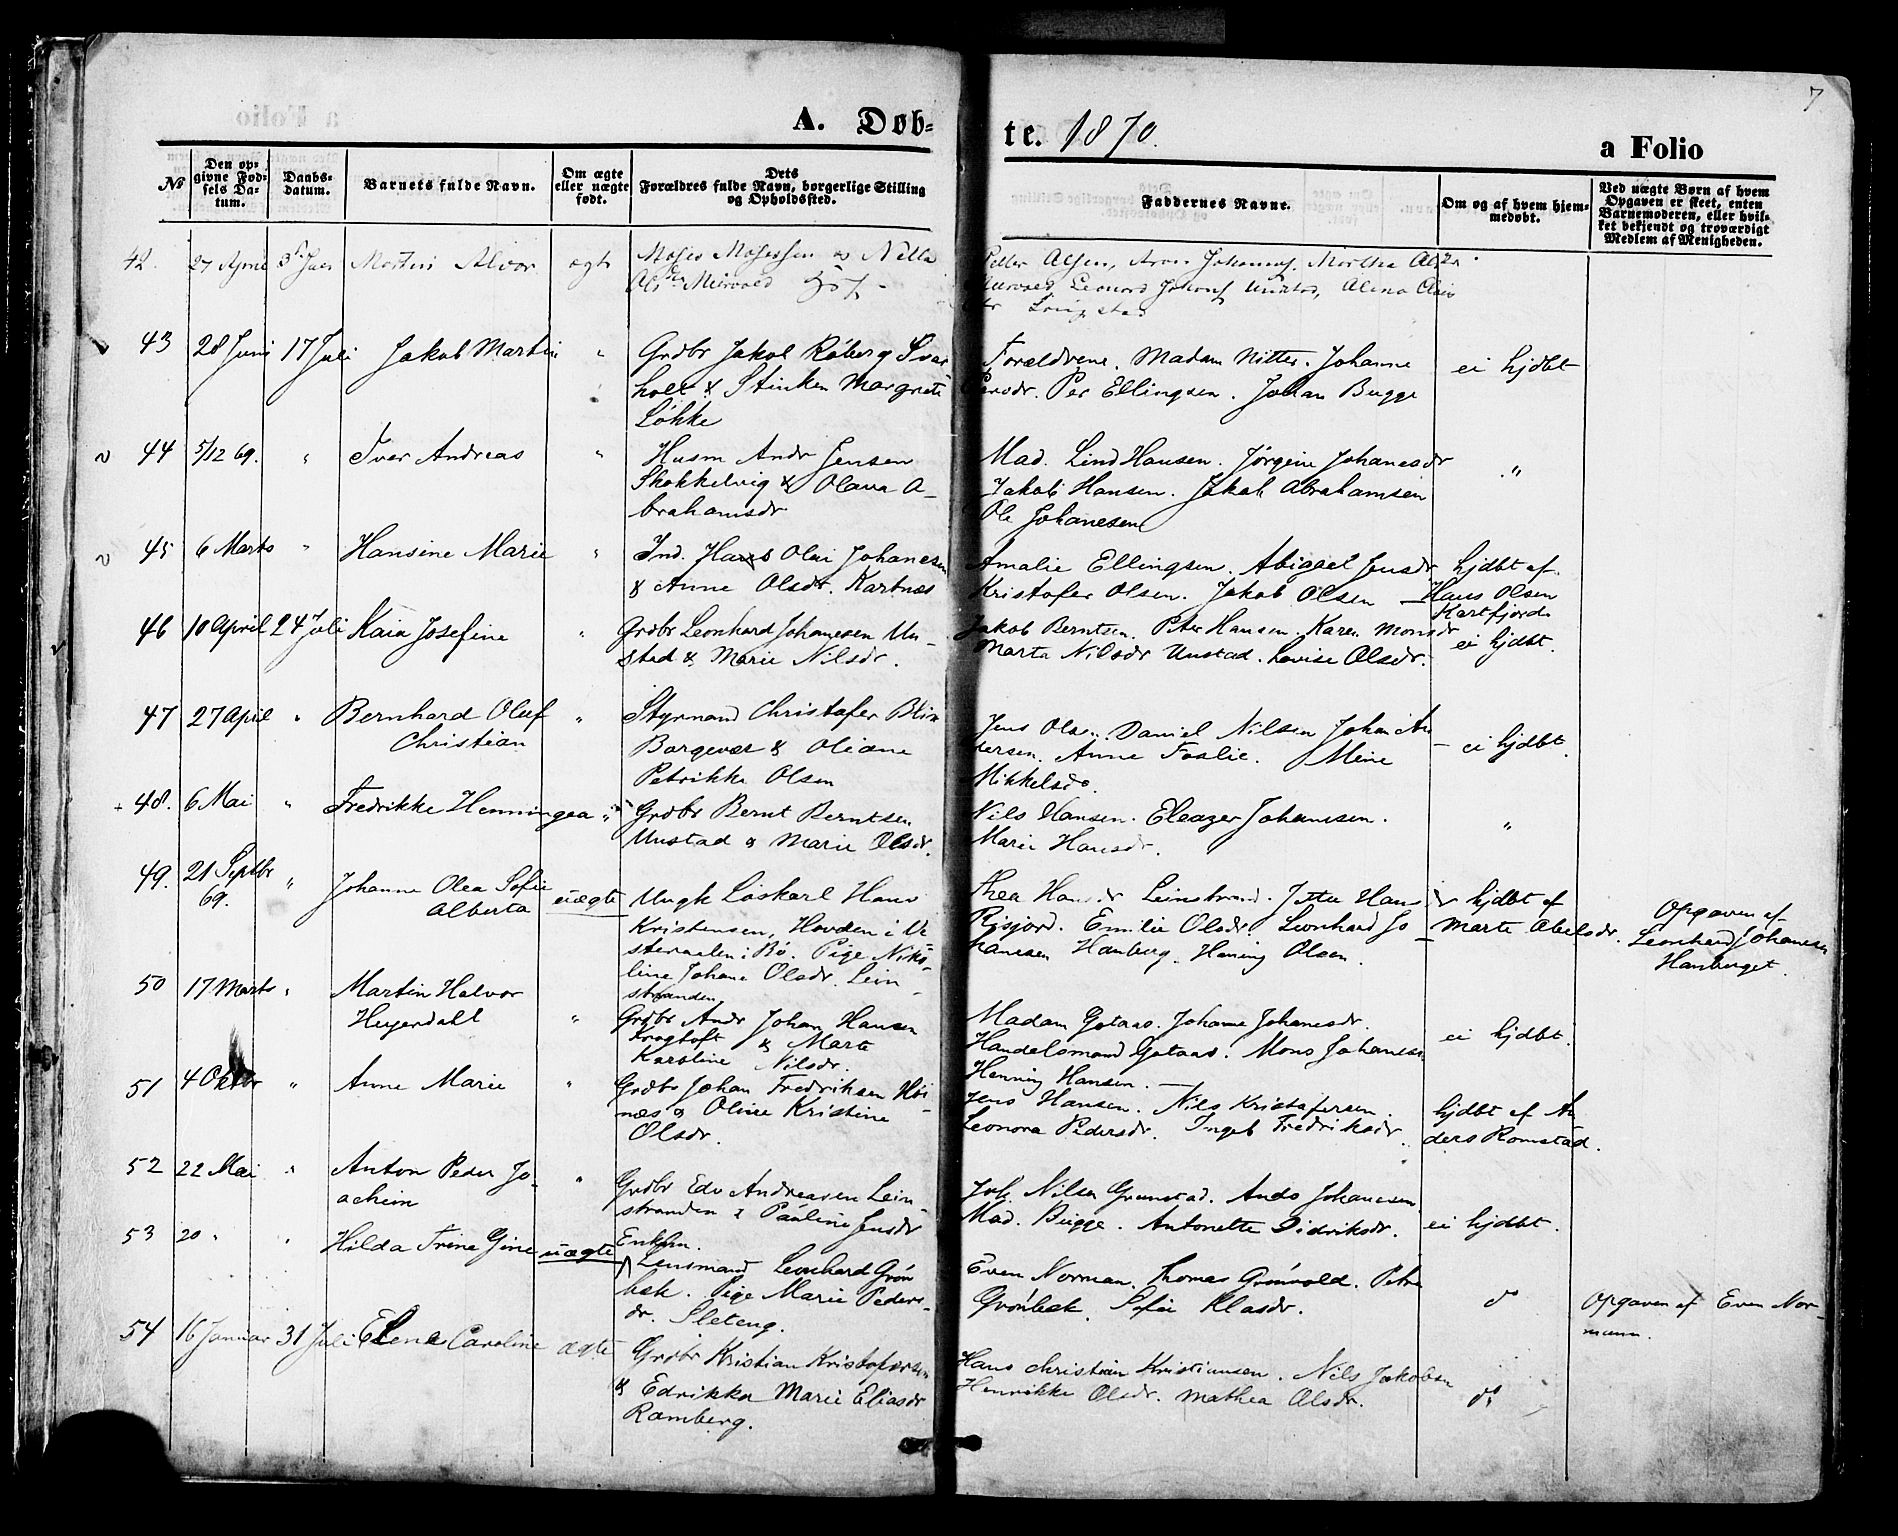 7
A. Døb-
te. 1870.
a Folio
№
Den op-
givne Fød-
sels Da-
tum.
Daabs-
datum.
Barnets fulde Navn.
Om ægte
eller uægte
født.
Dets
Forældres fulde Navn, borgerlige Stilling
og Opholdssted.
Faddernes Navne.
Om og af hvem hjem-
medøbt.
Ved uægte Børn af hvem
Opgaven er skeet, enten
Barnemoderen, eller hvil-
ket bekjendt og troværdigt
Medlem af Menigheden.
42. 27 April Alvor ægte
43 28 Juni 17 Juli Jakob Martin "
Grdbr Jakob Röberg Svar
holt & Stinken Margrete
Løkke
Forældrene. Madam Nitter. Johanne
Persdr. Per Ellingsen. Johan Bugge
ei hjdbt
44 5/12 69. " Iver Andreas "
Husm Andr Jensen
Skokkelvig & Olava A-
brahamsdr
Mad. Lind Hansen. Jørgine Johanesdr
Jakob Hansen. Jakob Abrahamsen
Ole Johanesen
"
45 6 Marts " Hansine Marie "
Ind. Hans Olai Johanesen
& Anne Olsdr. Kartnæs
Amalie Ellingsen. Abigael Jensdr
Kristofer Olsen. Jakob Olsen
hjdbt af
Hans Olsen
Kartfjord
46 10 April 24 Juli Kaia Josefine "
Grdbr Leonhard Johanesen Un-
stad & Marie Nilsdr.
Jakob Berntsen. Peter Hansen. Karen Monsdr
Marta Nilsdr Unstad. Lovise Olsdr.
ei hjdbt.
47 27 April " Bernhard Oluf
Christian "
Styrmand Christofer Blix
Borgevær & Oliane
Petrikke Olsen
Jens Olsen. Daniel Nilsen Johan An
dersen. Anne Foslie. Mine
Mikkelsdr.
ei hjdbt.
48. 6 Mai " Fredrikke Henningea "
Grdbr Bernt Berntsen
Unstad & Marie Olsdr.
Nils Hansen. Eleazer Johanesen.
Marie Hansdr.
"
49. 21 Septbr
69. " Johanne Olea Sofie
Alberta uægte
Ungk Løskarl Hans
Kristensen, Hovden i Ve
steraalen i Bø. Pige Niko-
line Johane Olsdr. Lein-
stranden
Thea Hansdr Leinstrand. Jette Hansdr
Risjord. Emilie Olsdr. Leonhard Jo
hanesen Hamberg. Hening Olsen.
hjdbt af
Marte Abelsdr.
Opgaven af
Leonhard Johanesen
Hamberget.
50 17 Marts " Martin Halvor
Heyerdahl "
Grdbr Andr Johan Hansen
Krogtoft & Marte
Karoline Nilsdr.
Madam Gotaas. Johane Johanesdr.
Handelsmand Gotaas. Mons Johanesen
Henning Hansen.
ei hjdbt.
51 4 Oktbr " Anne Marie "
Grdbr Johan Fredriksen Høi-
næs & Oline Kristine
Olsdr.
Jens Hansen. Nils Kristofersen.
Leonora Pedersdr. Ingeb Fredriksdr.
hjdbt af An
ders Romstad.
52 22 Mai " Anton Peder Jo-
achim "
Grdbr Edv Andreasen Lein-
stranden & Pauline Jensdr
Joh. Nilsen Grunstad. Ands Johanesen
Mad. Bugge. Antonette Didriksdr.
ei hjdbt.
53 20 " " Hilda Trine Gine uægte
Enkem.
Lensmand Leonhard Grön
bek. Pige Marie Peders-
dr. Sleteng.
Even Norman. Thomas Grönvold. Petra
Grönbek. Sofie Klasdr.
do
Opgaven af Even Nor-
mann.
54 16 Januar 31 Juli Elena Caroline ægte
Grdbr Kristian Kristofersen
& Edrikka Marie Eliasdr
Ramberg.
Hans Christian Kristiansen. Nils Jakobsen
Henrikke Olsdr. Mathea Olsdr.
do